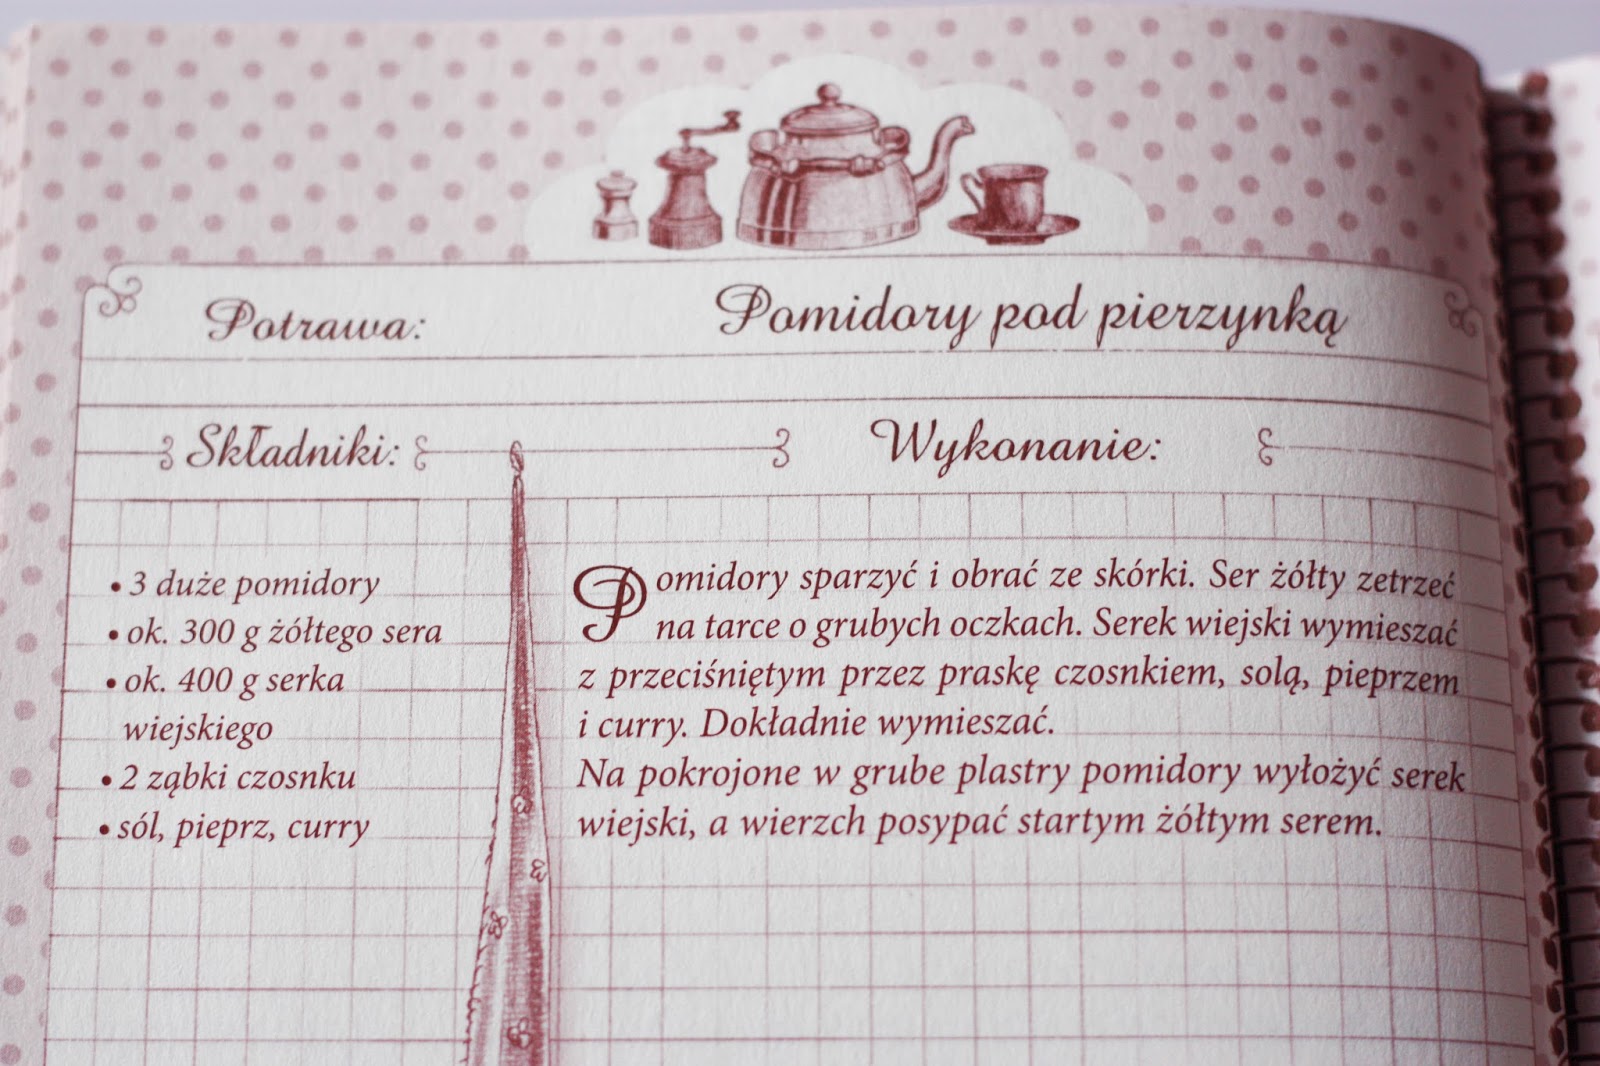 Potrawa: Pomidory pod pierzynką
Składniki:
• 3 duże pomidory
• ok. 300 g żółtego sera
• ok. 400 g serka
wiejskiego
• 2 ząbki czosnku
• sól, pieprz, curry
Wykonanie:
Pomidory sparzyć i obrać ze skórki. Ser żółty zetrzeć
na tarce o grubych oczkach. Serek wiejski wymieszać
z przeciśniętym przez praskę czosnkiem, solą, pieprzem
i curry. Dokładnie wymieszać.
Na pokrojone w grube plastry pomidory wyłożyć serek
wiejski, a wierzch posypać startym żółtym serem.